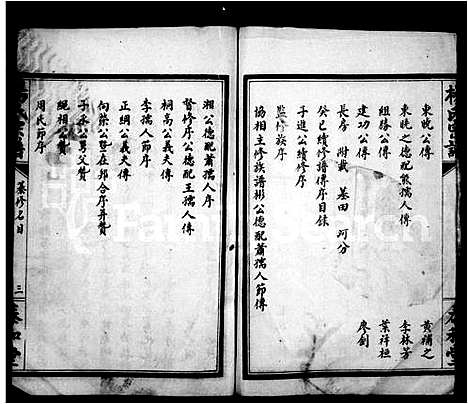 東晄公傳 黃補之
東晄之德配熊孺人傳 李林芳
組綠公傳 葉祥桓
建功公傳 廖劍
長房 附載 基田 珂分
癸巳續修譜序目錄
子進公續修傳序
監修族序
協相主修族譜彬公德配蕭孺人節傳
湘公德配蕭孺人序
督修序公德配王孺人傳
祠高公義夫傳
李孺人序
正綱公義夫傳
向榮公暨在邦合序并贊
子永公舅父贊
繩相公贊
周氏節序
纂修名目
三
FamilySearch